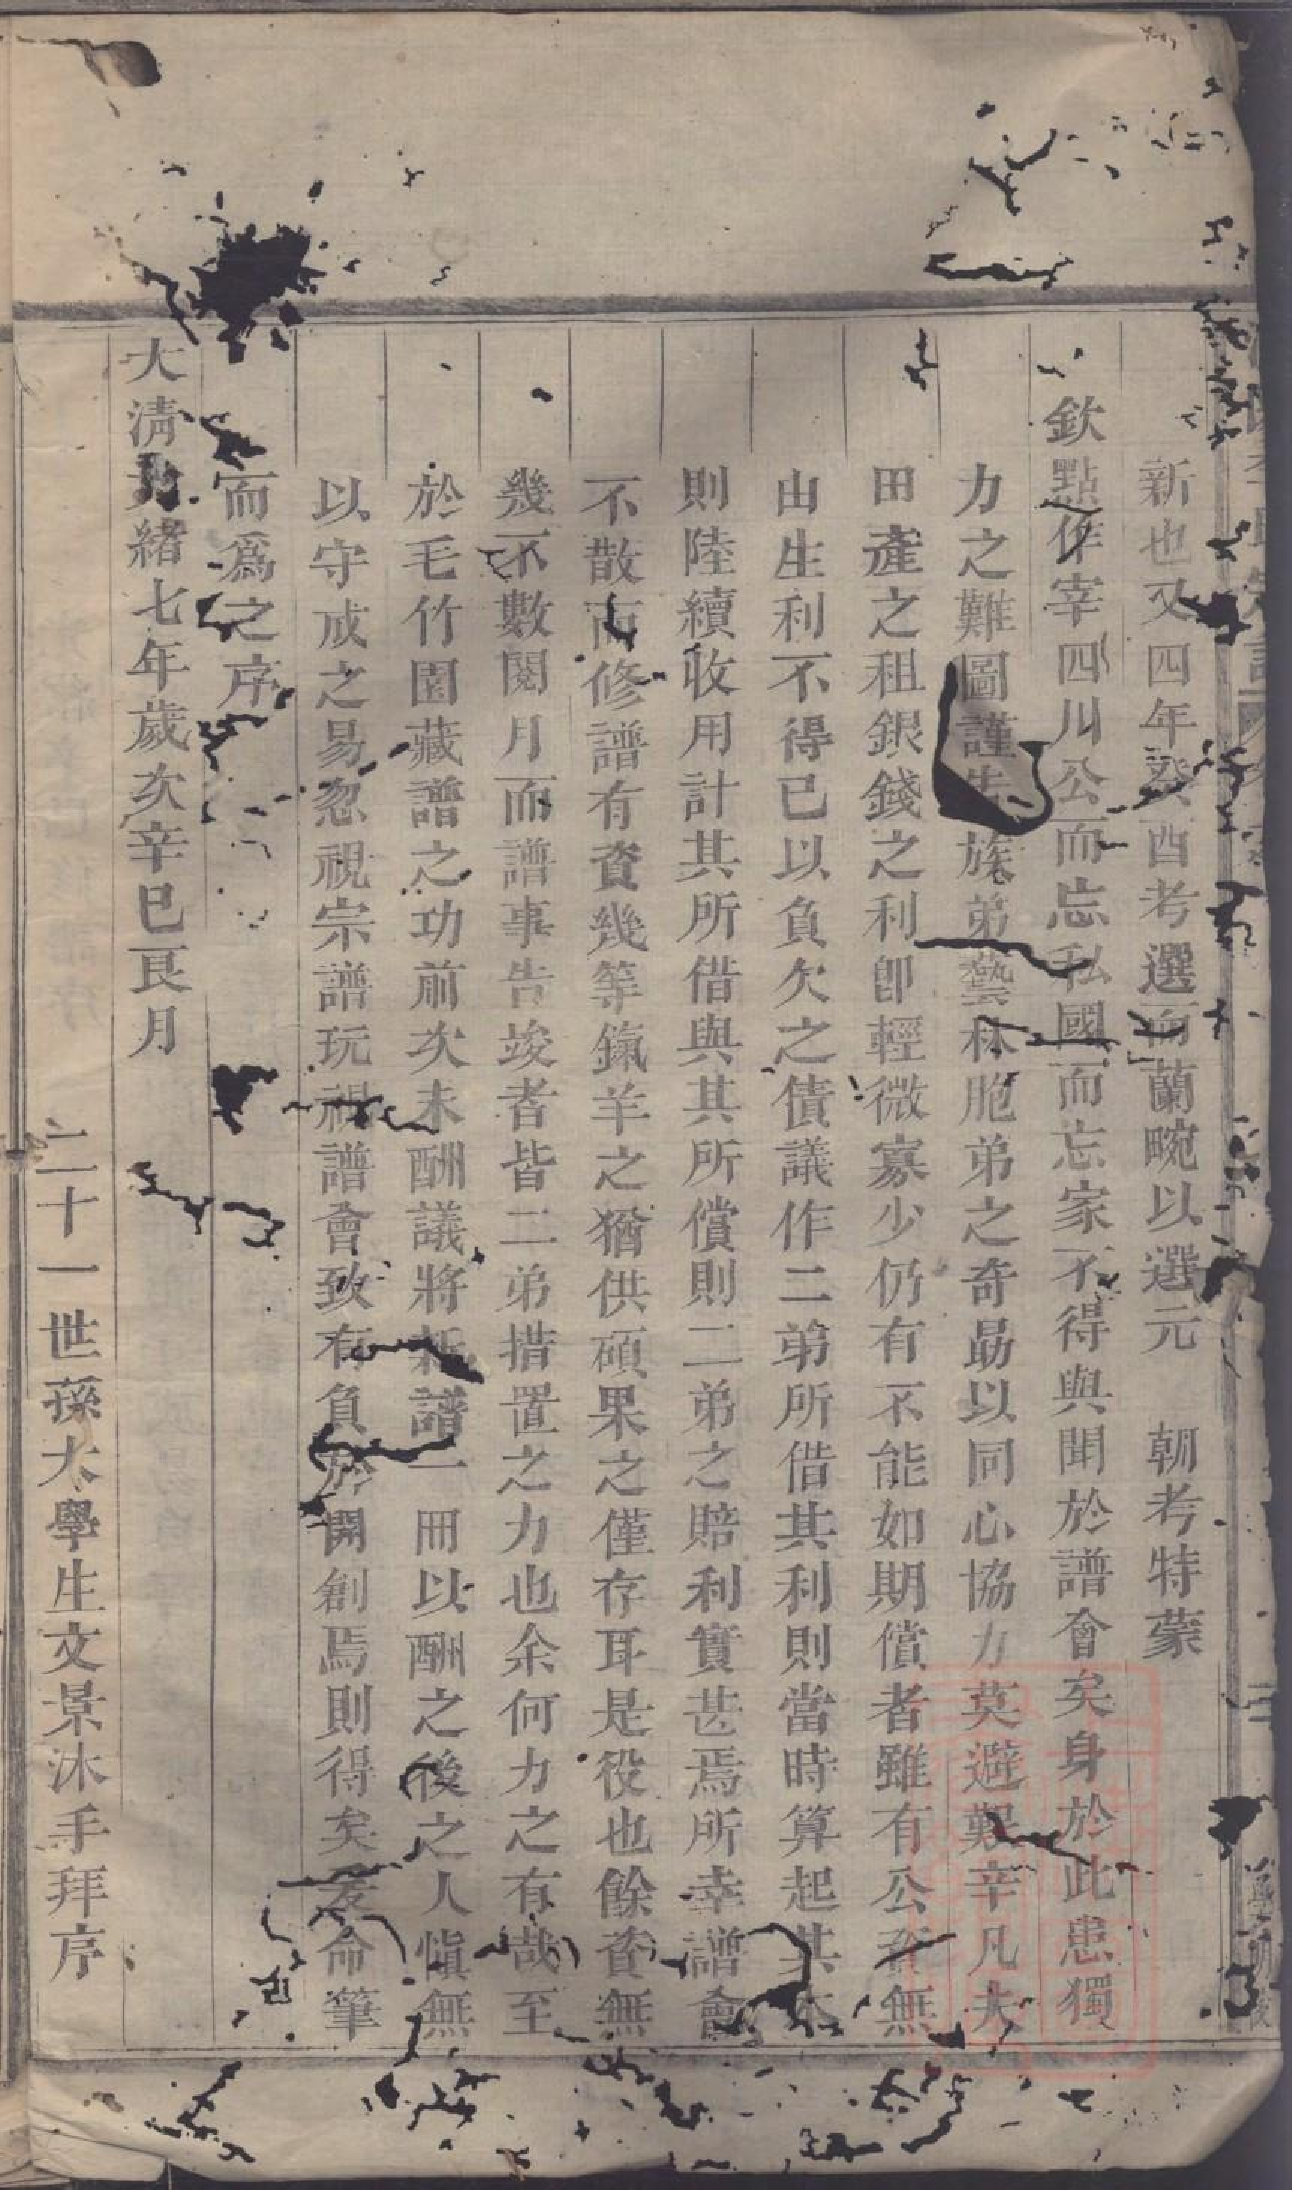 新也又四年癸酉考選而蘭畹以選元　朝考特蒙
欽點作宰四川公而忘私國而忘家不得與聞於譜會矣身於此患獨
力之難圖謹告族弟藝林胞弟之奇勗以同心協力莫避艱辛凡夫
田產之租銀錢之利卽輕微寡少仍有不能如期償者雖有公資無
由生利不得已以負欠之債議作二弟所借其利則當時算起其本
則陸續收用計其所借與其所償則二弟之賠利實甚焉所幸譜會
不散而修譜有資幾等餼羊之猶供碩果之僅存耳是役也餘資無
幾不數閱月而譜事告竣者皆二弟措置之力也余何力之有哉至
於毛竹園藏譜之功前次未酬議將新譜一冊以酬之後之人愼無
以守成之易忽視宗譜玩視譜會致有負於開創焉則得矣爰命筆
而爲之序
大淸光緒七年歲次辛巳艮月
二十一世孫太學生文景沐手拜序